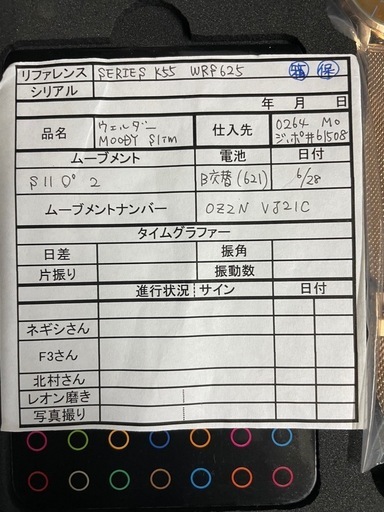 リファレンス SERIES K55 WRP625 箱 保
シリアル
年 月 日
品名 ウェルダー MOODY SIIM 仕入先 0264 MO ジッポ#61508
ムーブメント 電池 日付
SII 0° 2 B交替(621) 6/28
ムーブメントナンバー 0Z2N VJ21C
タイムグラファー
日差 振角
片振り 振動数
進行状況 サイン 日付
ネギシさん
F3さん
北村さん
レオン磨き
写真撮り